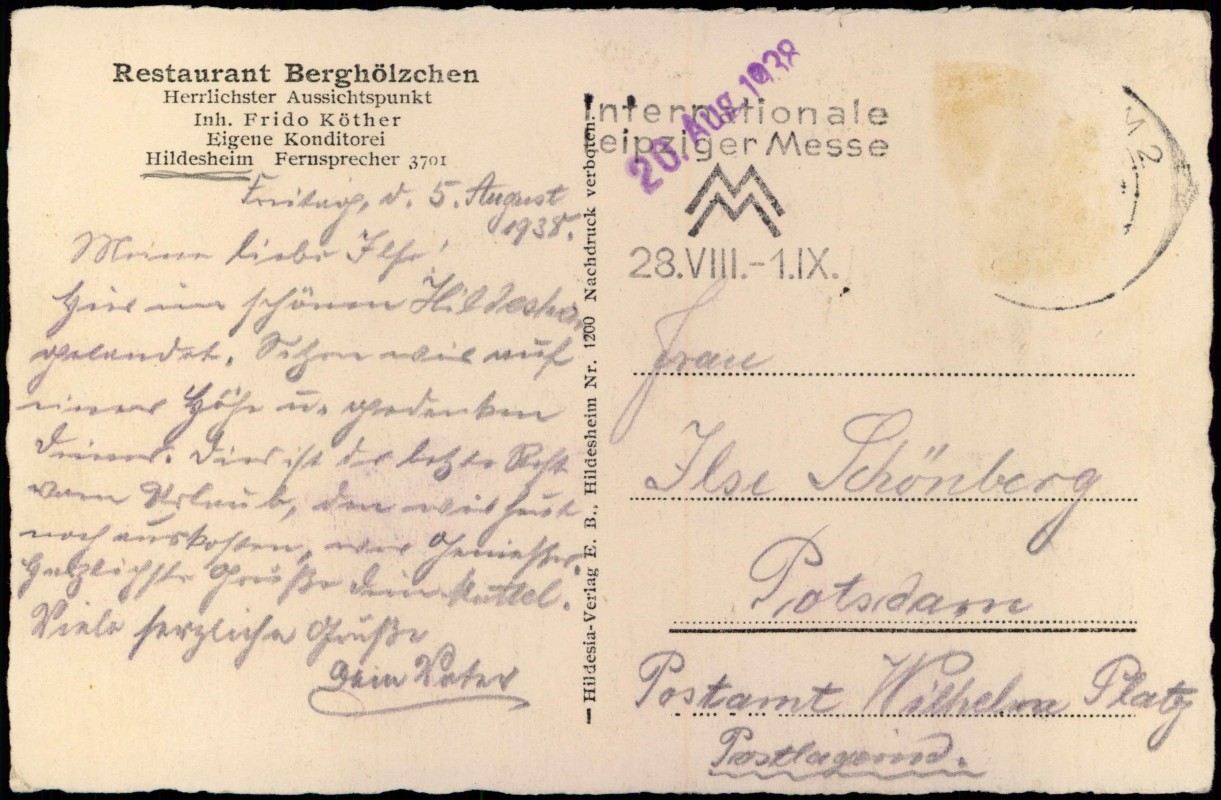 Restaurant Berghölzchen
Herrlichster Aussichtspunkt
Inh. Frido Köther
Eigene Konditorei
Hildesheim Fernsprecher 3701
Freitag, d. 5. August
1938.
Meine liebe Ilse!
Hier im schönen Hildesheim
gelandet. Sitzen wir auf
einer Höhe u. gedenken
Deiner. Dies ist der letzte Rest
vom Urlaub, den wir heut
noch auskosten, wie Genießer.
Herzlichste Grüße Dein Muttel.
Viele herzliche Grüße
Dein Vater
Hildesia-Verlag E. B., Hildesheim Nr. 1200 Nachdruck verboten.
26. Aug. 1938
Internationale
Leipziger Messe
28.VIII.-1.IX.
2
Frau
Ilse Schönberg
Potsdam
Postamt Wilhelm Platz
Postlagernd.